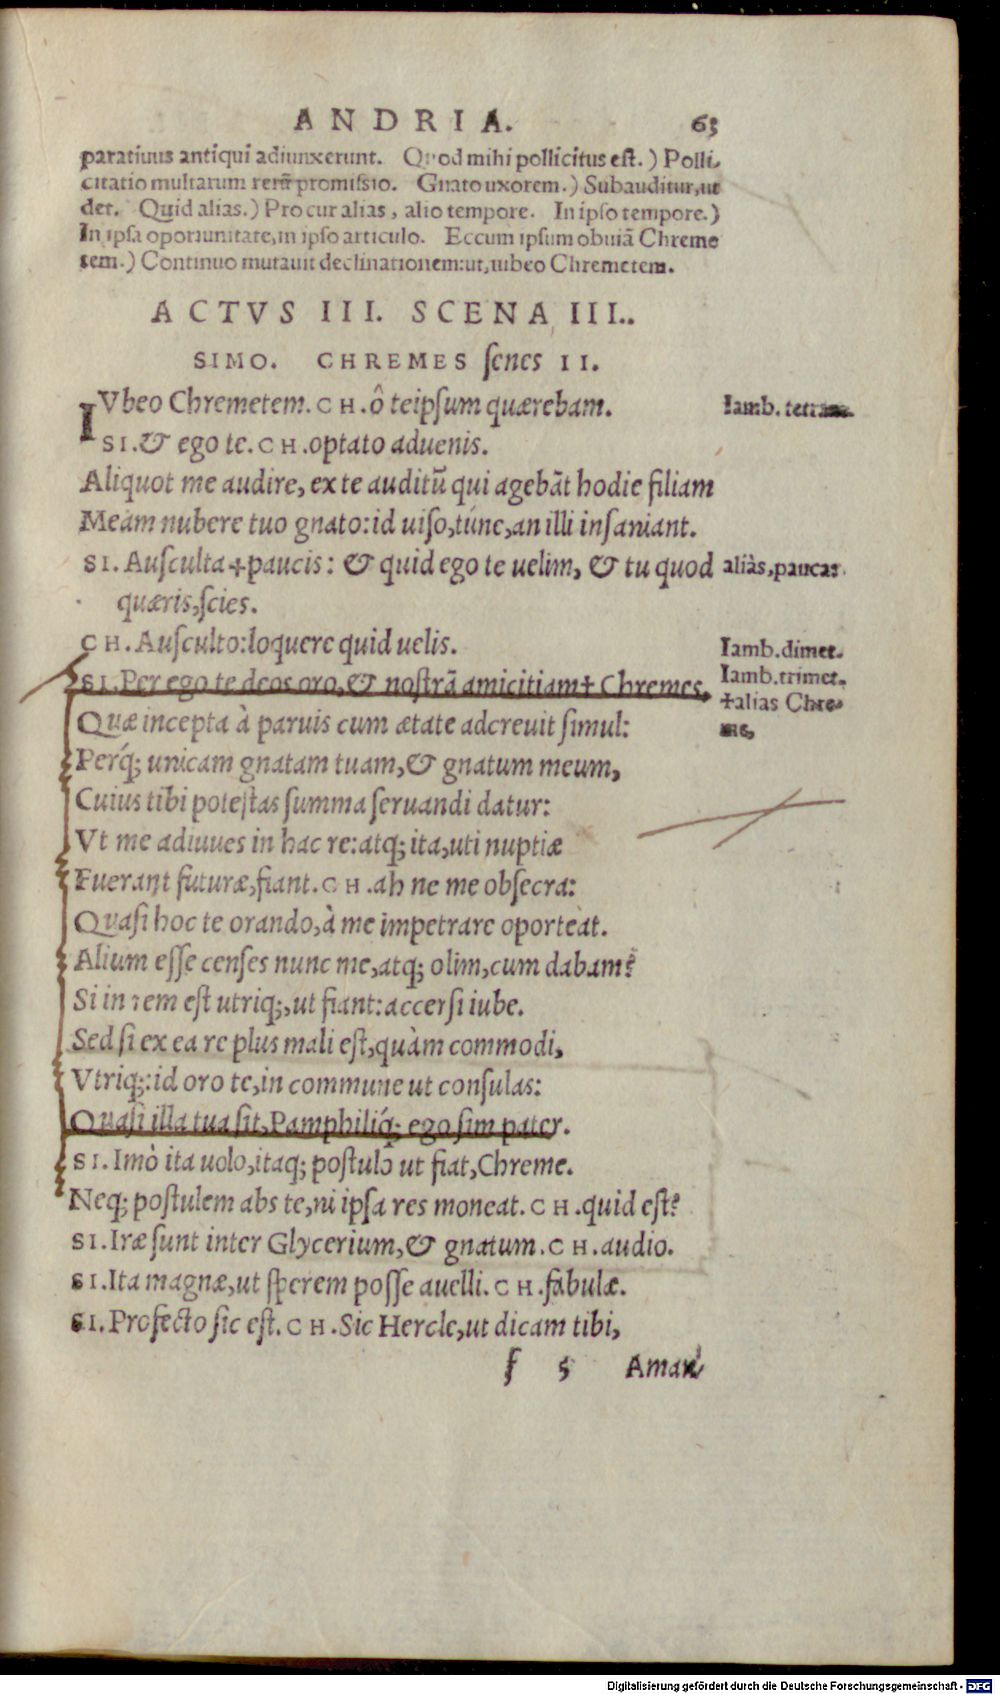 ANDRIA. 63
paratiuus antiqui adiunxerunt. Quod mihi pollicitus est.) Polli-
citatio multarum rerū promissio. Gnato uxorem.) Subauditur, ut
det. Quid alias.) Pro cur alias, alio tempore. In ipso tempore.)
In ipsa oportunitate, in ipso articulo. Eccum ipsum obuiā Chreme
tem.) Continuo mutauit declinationem: ut, iubeo Chremetem.
ACTVS III. SCENA III.
SIMO. CHREMES senes II.
IVbeo Chremetem. CH. ô teipsum quærebam. Iamb. tetram.
SI. & ego te. CH. optato aduenis.
Aliquot me audire, ex te auditū qui agebāt hodie filiam
Meam nubere tuo gnato: id uiso, túne, an illi insaniant.
SI. Ausculta + paucis: & quid ego te uelim, & tu quod aliàs, paucas
quæris, scies.
CH. Ausculto: loquere quid uelis. Iamb. dimet.
SI. Per ego te deos oro, & nostrā amicitiam + Chremes, Iamb. trimet.
+ alias Chre-
me,
Quæ incepta à paruis cum ætate adcreuit simul:
Perq́; unicam gnatam tuam, & gnatum meum,
Cuius tibi potestas summa seruandi datur:
Vt me adiuues in hac re: atq; ita, uti nuptiæ
Fuerant futuræ, fiant. CH. ah ne me obsecra:
Quasi hoc te orando, à me impetrare oporteat.
Alium esse censes nunc me, atq; olim, cum dabam?
Si in rem est utriq;, ut fiant: accersi iube.
Sed si ex ea re plus mali est, quàm commodi,
Vtriq;: id oro te, in commune ut consulas:
Quasi illa tua sit, Pamphiliq́; ego sim pater.
SI. Imò ita uolo, itaq; postulo ut fiat, Chreme.
Neq; postulem abs te, ni ipsa res moneat. CH. quid est?
SI. Iræ sunt inter Glycerium, & gnatum. CH. audio.
SI. Ita magnæ, ut sperem posse auelli. CH. fabulæ.
SI. Profecto sic est. CH. Sic Hercle, ut dicam tibi,
f 5 Aman
Digitalisierung gefördert durch die Deutsche Forschungsgemeinschaft - DFG